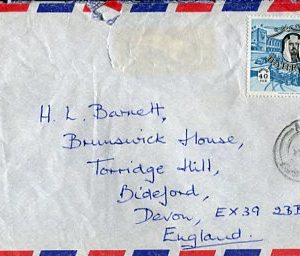 BAHRAIN
40
H. L. Barnett,
Brunswick House,
Torridge Hill,
Bideford,
Devon, EX39 2BB
England.